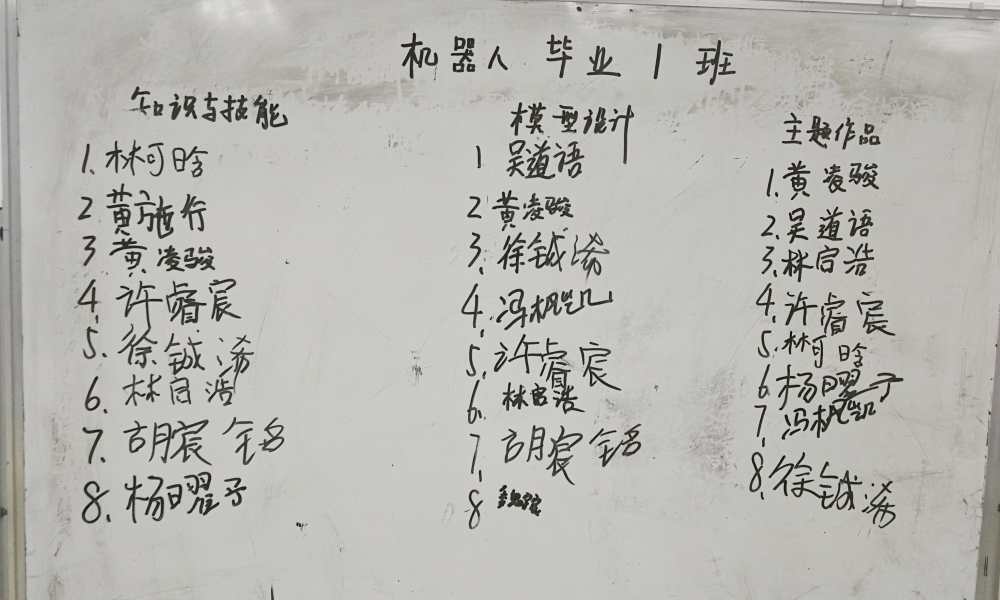 机器人 毕业1班
知识与技能
1. 林可晗
2 黄施行
3 黄凌骏
4. 许睿宸
5. 徐铖浠
6. 林启浩
7. 胡宸铭
8. 杨曜于
模型设计
1 吴道语
2 黄凌骏
3. 徐铖浠
4. 冯枫凯
5. 许睿宸
6. 林启浩
7. 胡宸铭
8
主题作品
1. 黄凌骏
2. 吴道语
3. 林启浩
4. 许睿宸
5. 林可晗
6. 杨曜于
7. 冯枫凯
8. 徐铖浠